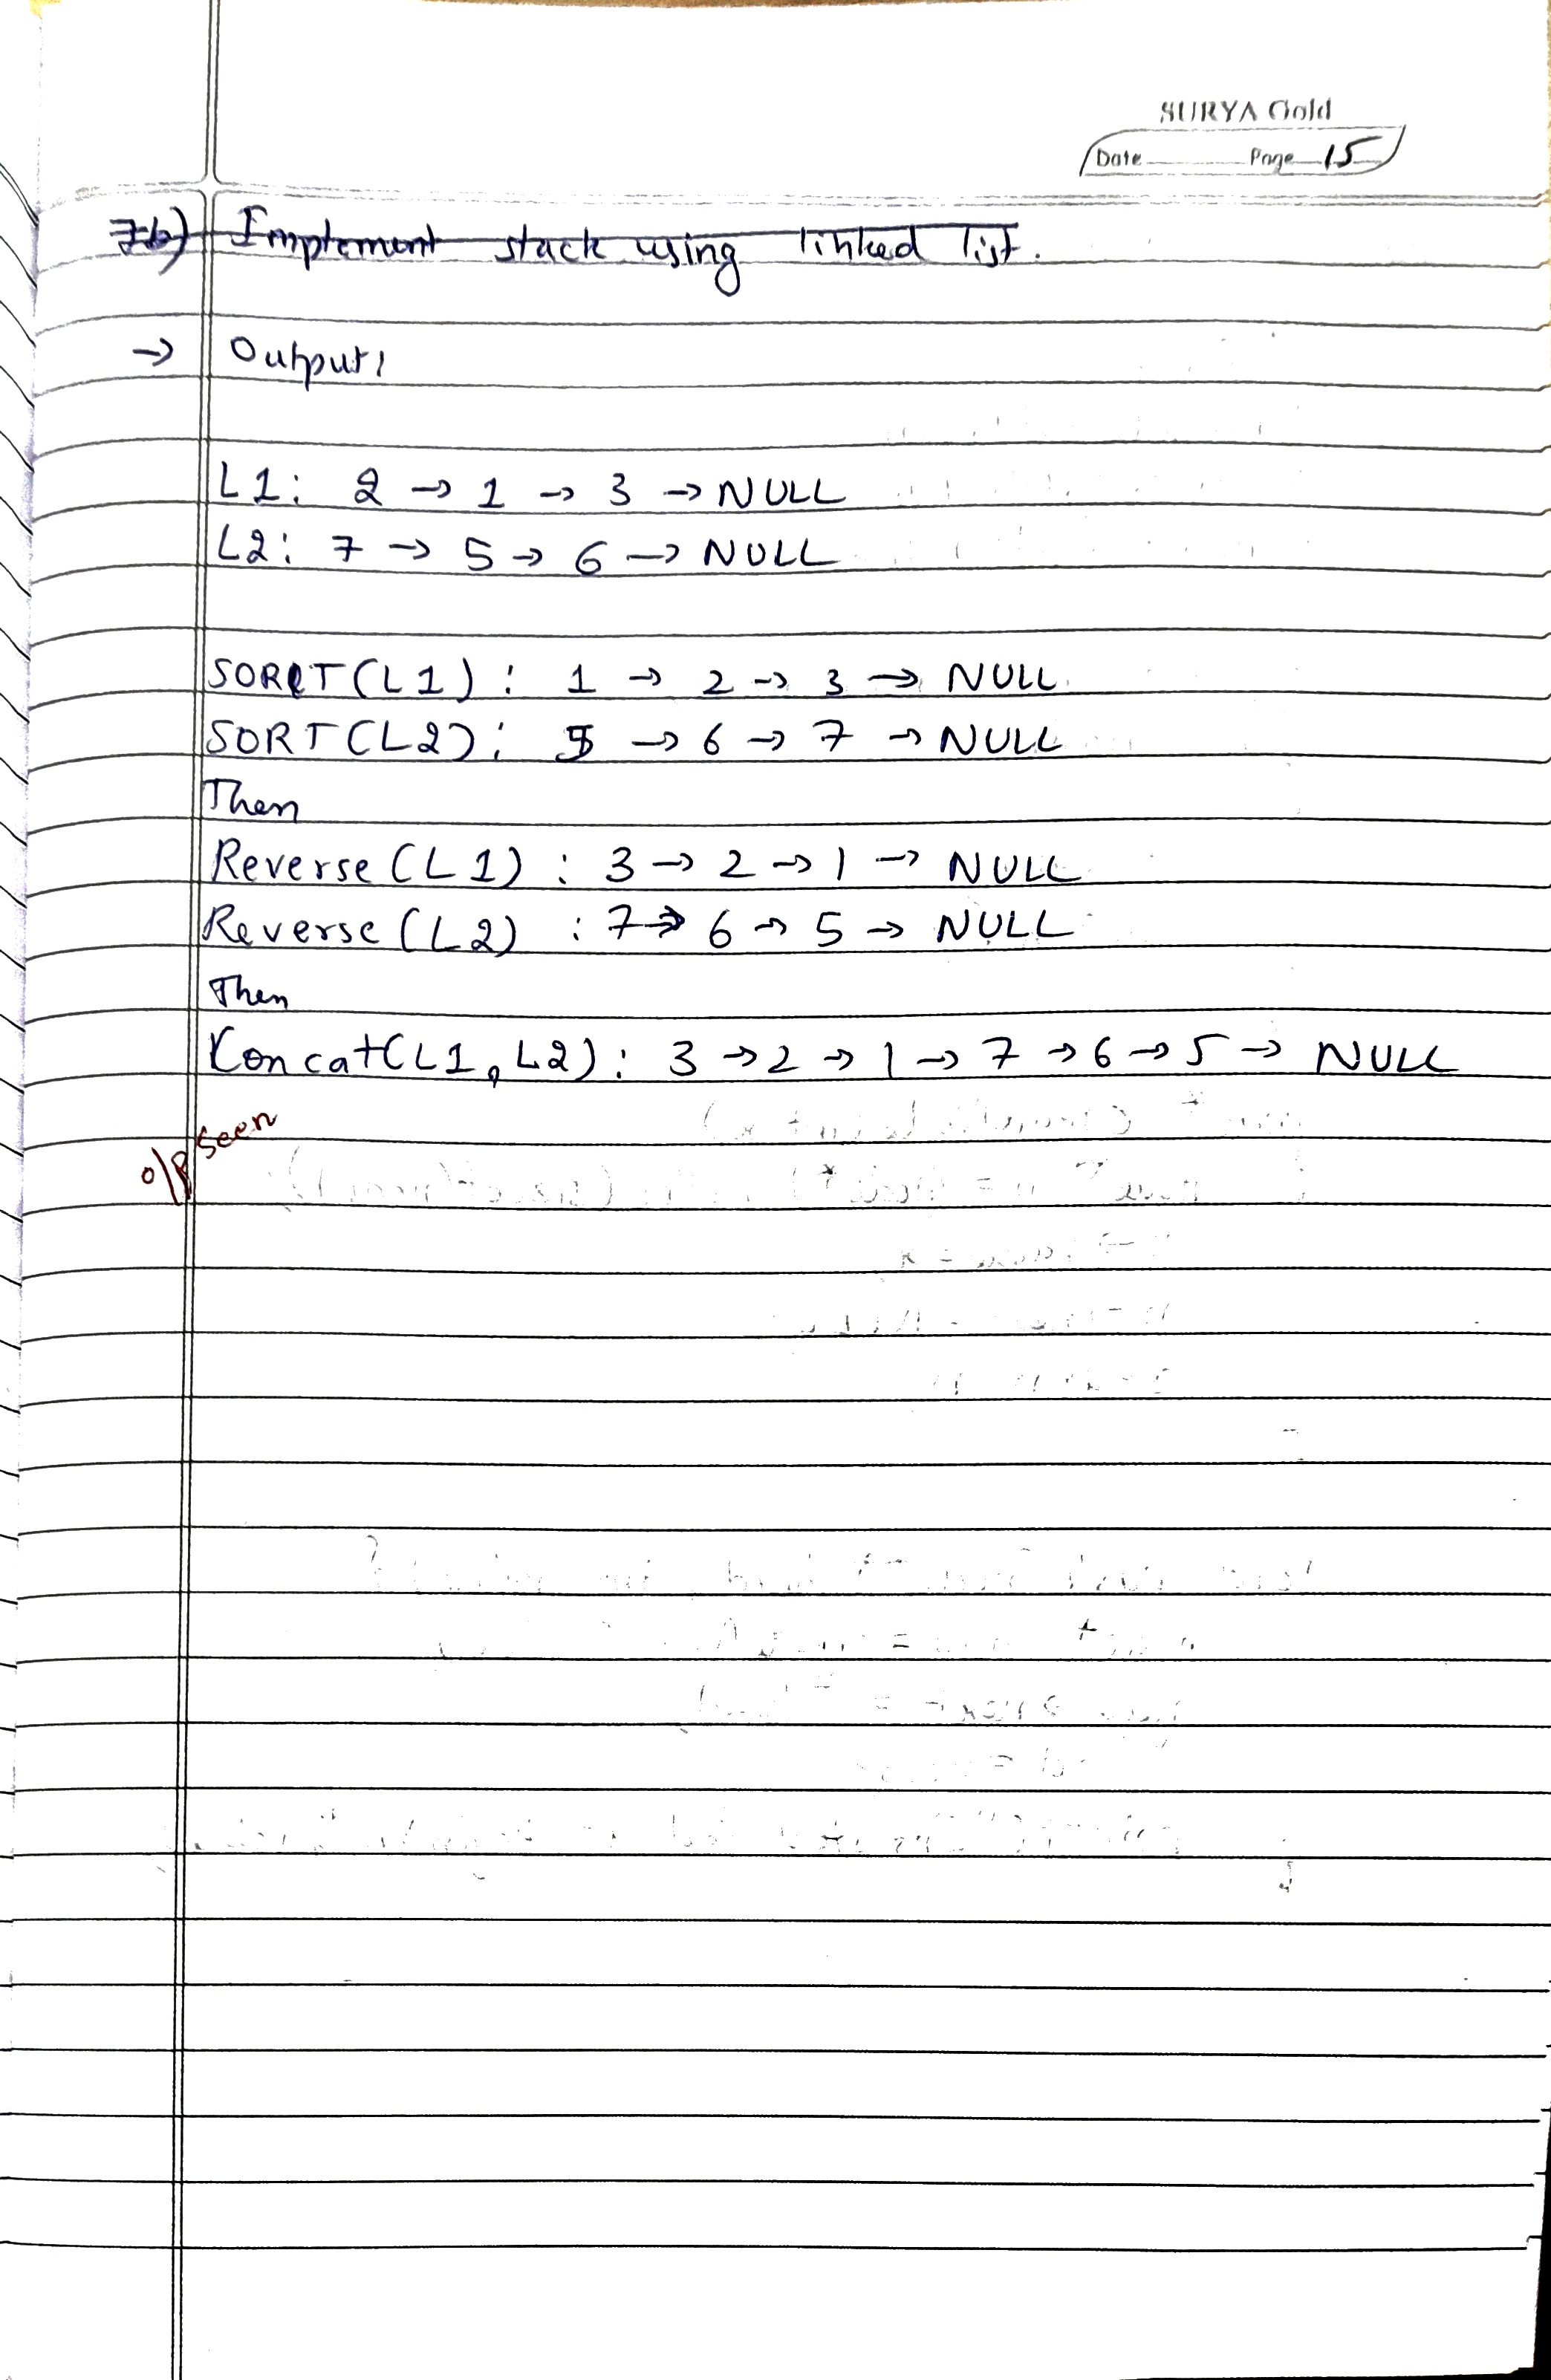 SURYA Gold
Date Page 15
7b) Implement stack using linked list.
→ Output:
L1: 2 → 1 → 3 → NULL
L2: 7 → 5 → 6 → NULL
SORT(L1): 1 → 2 → 3 → NULL
SORT(L2): 5 → 6 → 7 → NULL
Then
Reverse(L1) : 3 → 2 → 1 → NULL
Reverse(L2) : 7 → 6 → 5 → NULL
Then
Concat(L1, L2): 3 → 2 → 1 → 7 → 6 → 5 → NULL
o/p seen